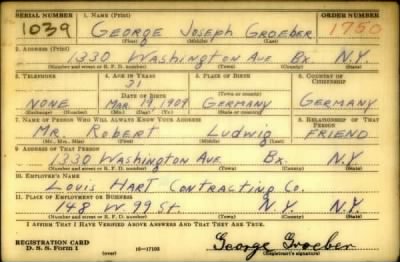 SERIAL NUMBER 1. NAME (Print) ORDER NUMBER
1039 GEORGE JOSEPH GROEBER 1750
(First) (Middle) (Last)
2. ADDRESS (Print)
1330 WASHINGTON AVE BX. N.Y.
(Number and street or R. F. D. number) (Town) (County) (State)
3. TELEPHONE 4. AGE IN YEARS 5. PLACE OF BIRTH 6. COUNTRY OF CITIZENSHIP
31
DATE OF BIRTH (Town or county)
NONE MAR. 19, 1909 GERMANY GERMANY
(Exchange) (Number) (Mo.) (Day) (Yr.) (State or country)
7. NAME OF PERSON WHO WILL ALWAYS KNOW YOUR ADDRESS 8. RELATIONSHIP OF THAT PERSON
MR. ROBERT LUDWIG FRIEND
(Mr., Mrs., Miss) (First) (Middle) (Last)
9. ADDRESS OF THAT PERSON
1330 WASHINGTON AVE BX. N.Y.
(Number and street or R. F. D. number) (Town) (County) (State)
10. EMPLOYER'S NAME
LOUIS HART CONTRACTING CO.
11. PLACE OF EMPLOYMENT OR BUSINESS
148 W. 99 ST. N.Y. N.Y.
(Number and street or R. F. D. number) (Town) (County) (State)
I AFFIRM THAT I HAVE VERIFIED ABOVE ANSWERS AND THAT THEY ARE TRUE.
REGISTRATION CARD George Groeber
D. S. S. Form 1 (over) 16—17105 (Registrant's signature)